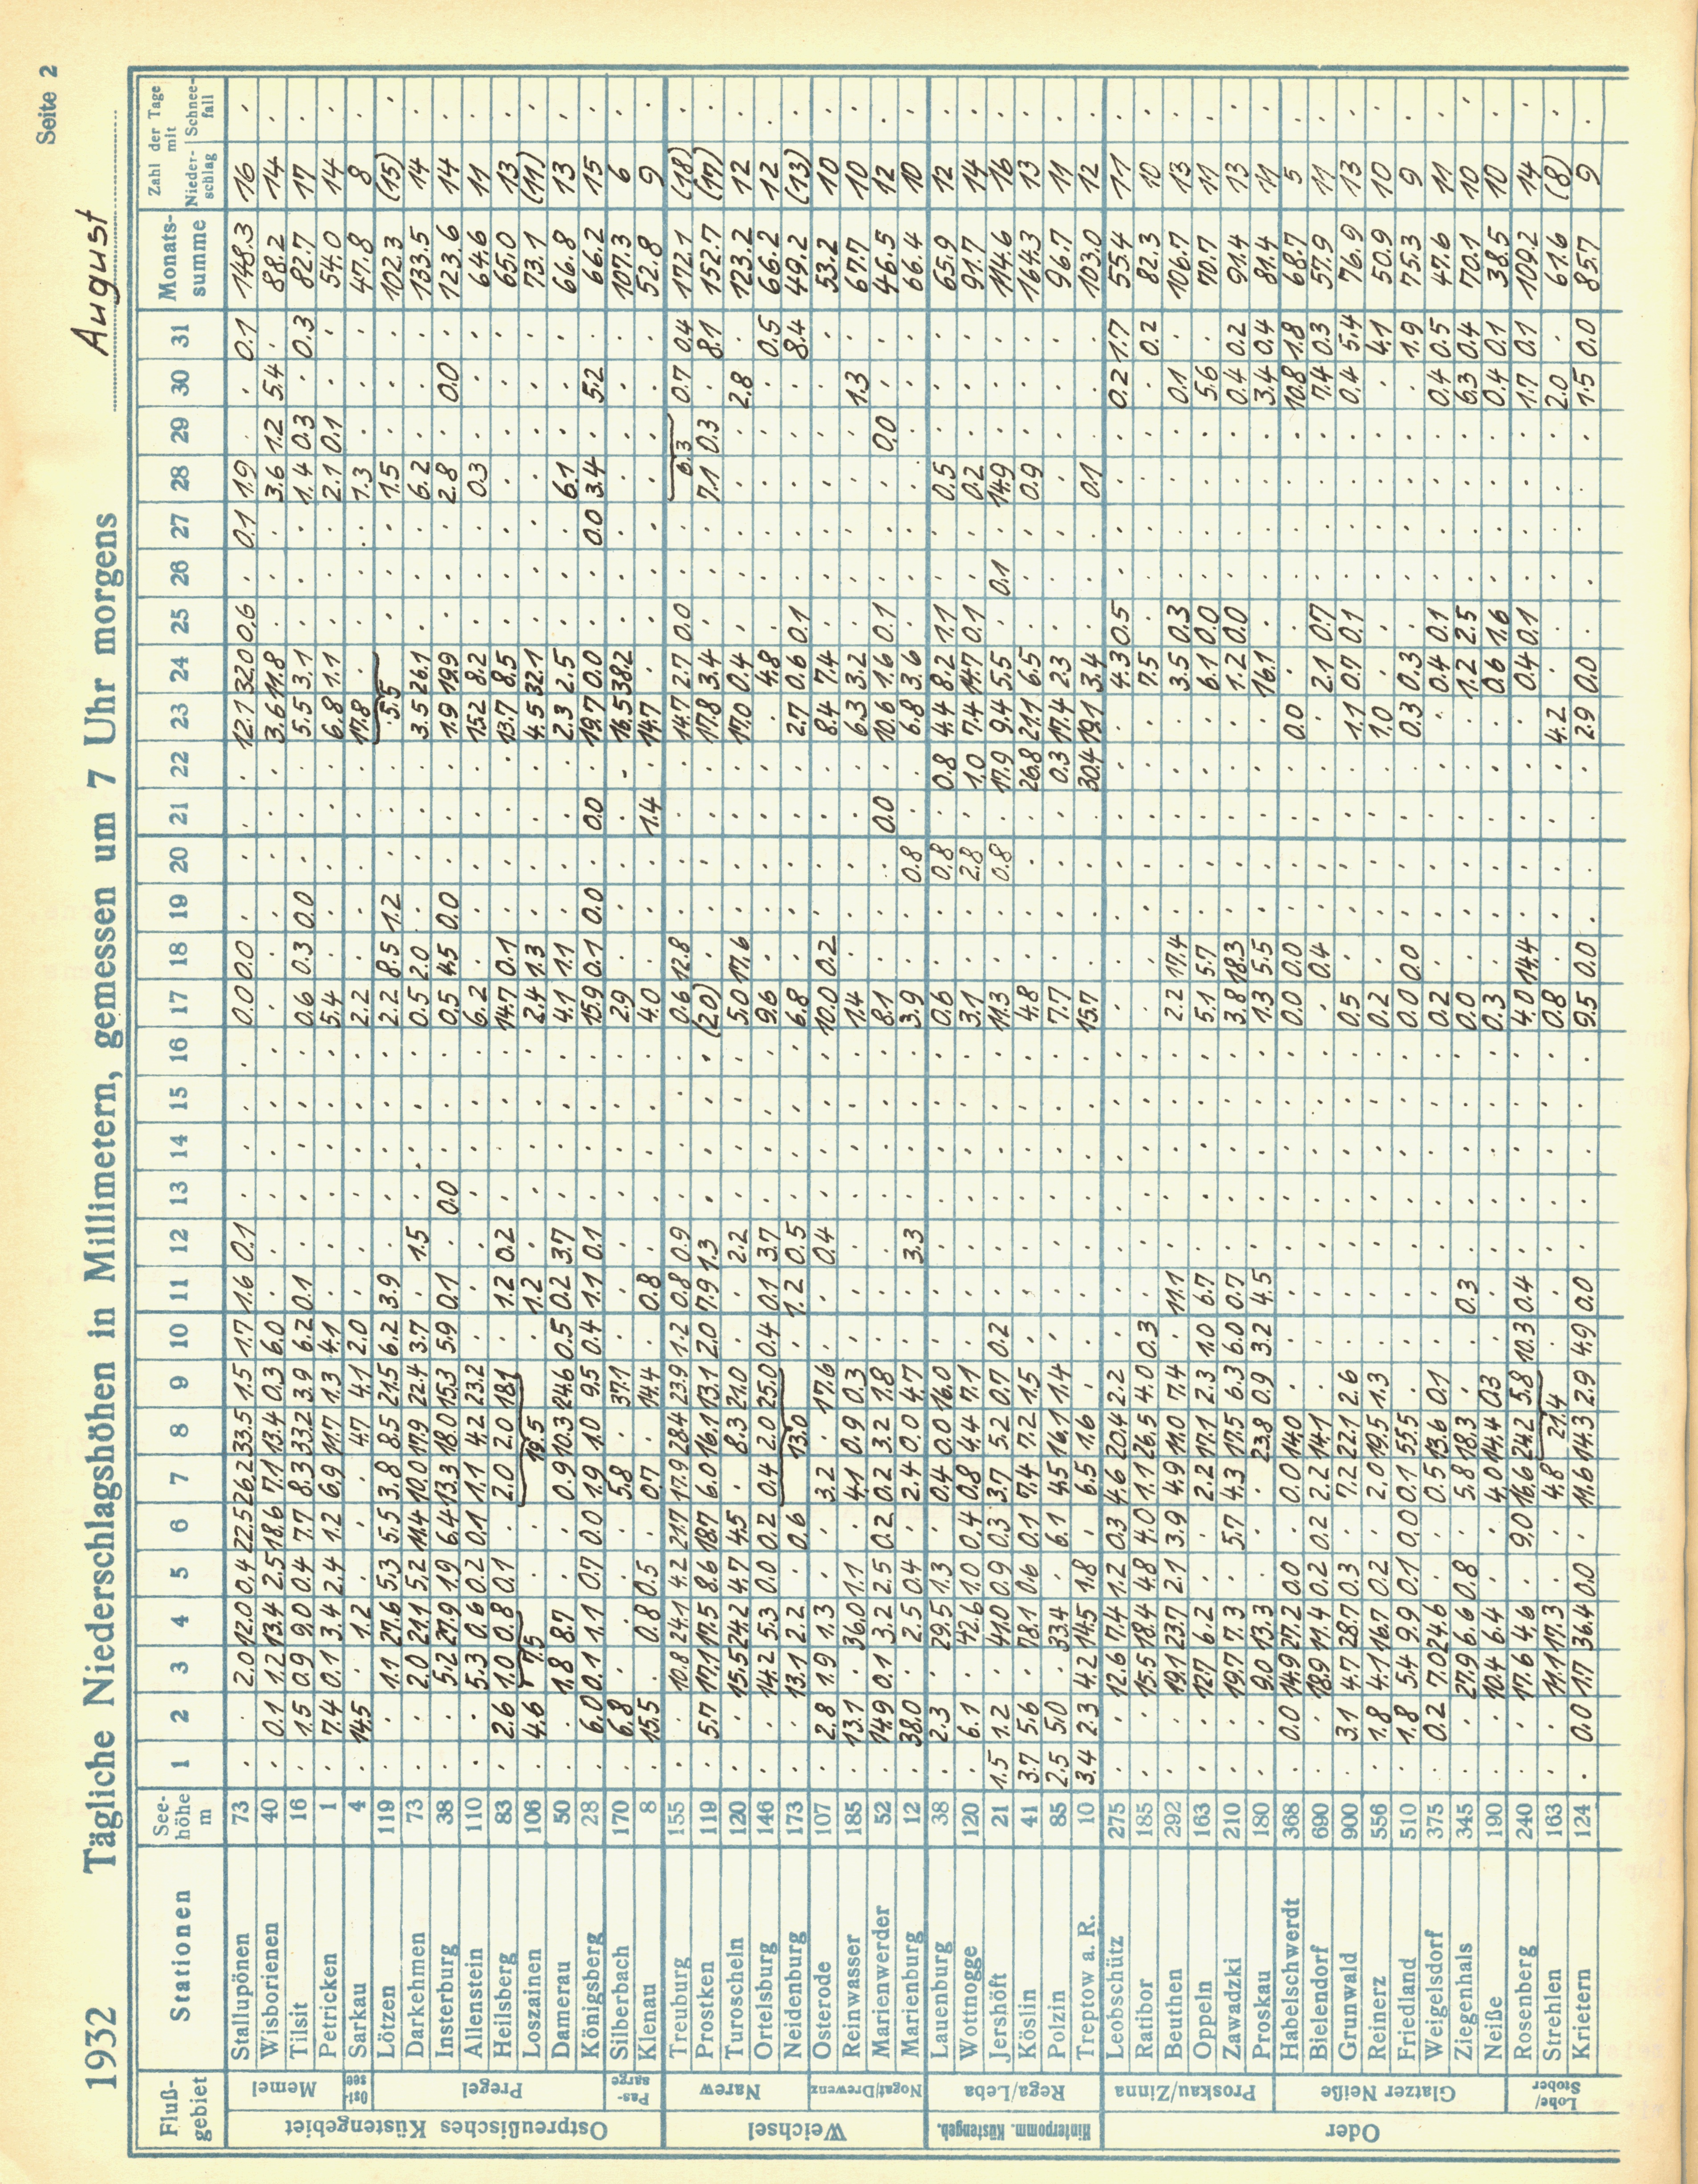 Seite 2
1932 Tägliche Niederschlagshöhen in Millimetern, gemessen um 7 Uhr morgens August
Fluß-gebiet Stationen See-höhe m 1 2 3 4 5 6 7 8 9 10 11 12 13 14 15 16 17 18 19 20 21 22 23 24 25 26 27 28 29 30 31 Monats-summe Zahl der Tage mit Nieder-schlag Schnee-fall
Ostpreußisches Küstengebiet
Memel
Stallupönen 73 . . 2.0 12.0 0.4 22.5 26.2 33.5 1.5 1.7 1.6 0.1 . . . . 0.0 0.0 . . . . 12.1 32.0 0.6 . 0.1 1.9 . . 0.1 148.3 16 .
Wisborienen 40 . 0.1 1.2 13.4 2.5 18.6 7.1 13.4 0.3 6.0 . . . . . . . . . . . . 3.6 11.8 . . . 3.6 1.2 5.4 . 88.2 14 .
Tilsit 16 . 1.5 0.9 9.0 0.4 7.7 8.3 33.2 3.9 6.2 0.1 . . . . . 0.6 0.3 0.0 . . . 5.5 3.1 . . . 1.4 0.3 . 0.3 82.7 17 .
Petricken 1 . 7.4 0.1 3.4 2.4 1.2 6.9 11.7 1.3 4.1 . . . . . . 5.4 . . . . . 6.8 1.1 . . . 2.1 0.1 . . 54.0 14 .
Ostsee
Sarkau 4 . 14.5 . 1.2 . . . 4.7 4.1 2.0 . . . . . . 2.2 . . . . . 17.8 . . . . 1.3 . . . 47.8 8 .
Pregel
Lötzen 119 . . 1.1 27.6 5.3 5.5 3.8 8.5 21.5 6.2 3.9 . . . . . 2.2 8.5 1.2 . . . 5.5 . . . 1.5 . . . 102.3 (15) .
Darkehmen 73 . . 2.0 21.1 5.2 11.4 10.0 17.9 22.4 3.7 . 1.5 . . . . 0.5 2.0 . . . . 3.5 26.1 . . . 6.2 . . . 133.5 14 .
Insterburg 38 . . 5.2 27.9 1.9 6.4 13.3 18.0 15.3 5.9 0.1 . 0.0 . . . 0.5 4.5 0.0 . . . 1.9 19.9 . . . 2.8 . 0.0 . 123.6 14 .
Allenstein 110 . . 5.3 0.6 0.2 0.1 1.1 4.2 23.2 . . . . . . . 6.2 . . . . . 15.2 8.2 . . . 0.3 . . . 64.6 11 .
Heilsberg 83 . 2.6 1.0 0.8 0.1 . 2.0 2.0 18.1 . 1.2 0.2 . . . . 14.7 0.1 . . . . 13.7 8.5 . . . . . . . 65.0 13 .
Loszainen 106 . 4.6 7.5 . . 19.5 . 1.2 . . . . . 2.4 1.3 . . . . 4.5 32.1 . . . . . . . 73.1 (11) .
Damerau 50 . . 1.8 8.7 . . 0.9 10.3 24.6 0.5 0.2 3.7 . . . . 4.1 1.1 . . . . 2.3 2.5 . . . 6.1 . . . 66.8 13 .
Königsberg 28 . 6.0 0.1 1.1 0.7 0.0 1.9 1.0 9.5 0.4 1.1 0.1 . . . . 15.9 0.1 0.0 . 0.0 . 19.7 0.0 . . 0.0 3.4 . 5.2 . 66.2 15 .
Passarge
Silberbach 170 . 6.8 . . . . 5.8 . 37.1 . . . . . . . 2.9 . . . . . 16.5 38.2 . . . . . . . 107.3 6 .
Klenau 8 . 15.5 . 0.8 0.5 . 0.7 . 14.4 . 0.8 . . . . . 4.0 . . . 1.4 . 14.7 . . . . . . . . 52.8 9 .
Weichsel
Narew
Treuburg 155 . . 10.8 24.1 4.2 21.7 17.9 28.4 23.9 1.2 0.8 0.9 . . . . 0.6 12.8 . . . . 14.7 2.7 0.0 . . 6.3 0.7 0.4 172.1 (18) .
Prostken 119 . 5.7 17.1 17.5 8.6 18.7 6.0 16.1 13.1 2.0 7.9 1.3 . . . . (2.0) . . . . . 17.8 3.4 . . . 7.1 0.3 . 8.1 152.7 (17) .
Turoscheln 120 . . 15.5 24.2 4.7 4.5 . 8.3 21.0 . . 2.2 . . . . 5.0 17.6 . . . . 17.0 0.4 . . . . . 2.8 . 123.2 12 .
Ortelsburg 146 . . 14.2 5.3 0.0 0.2 0.4 2.0 25.0 0.4 0.1 3.7 . . . . 9.6 . . . . . . 4.8 . . . . . . 0.5 66.2 12 .
Neidenburg 173 . . 13.1 2.2 . 0.6 13.0 . 1.2 0.5 . . . . 6.8 . . . . . 2.7 0.6 0.1 . . . . . 8.4 49.2 (13) .
Nogat/Drewenz
Osterode 107 . 2.8 1.9 1.3 . . 3.2 . 17.6 . . 0.4 . . . . 10.0 0.2 . . . . 8.4 7.4 . . . . . . . 53.2 10 .
Reinwasser 185 . 13.1 . 36.0 1.1 . 4.1 0.9 0.3 . . . . . . . 1.4 . . . . . 6.3 3.2 . . . . . 1.3 . 67.7 10 .
Marienwerder 52 . 14.9 0.1 3.2 2.5 0.2 0.2 3.2 1.8 . . . . . . . 8.1 . . . 0.0 . 10.6 1.6 0.1 . . . 0.0 . . 46.5 12 .
Marienburg 12 . 38.0 . 2.5 0.4 . 2.4 0.0 4.7 . . 3.3 . . . . 3.9 . . 0.8 . . 6.8 3.6 . . . . . . . 66.4 10 .
Hinterpomm. Küstengeb.
Rega/Leba
Lauenburg 38 . 2.3 . 29.5 1.3 . 0.4 0.0 16.0 . . . . . . . 0.6 . . 0.8 . 0.8 4.4 8.2 1.1 . . 0.5 . . . 65.9 12 .
Wottnogge 120 . 6.1 . 42.6 1.0 0.4 0.8 4.4 7.1 . . . . . . . 3.1 . . 2.8 . 1.0 7.4 14.7 0.1 . . 0.2 . . . 91.7 14 .
Jershöft 21 1.5 1.2 . 41.0 0.9 0.3 3.7 5.2 0.7 0.2 . . . . . . 11.3 . . 0.8 . 17.9 9.4 5.5 . 0.1 . 14.9 . . . 114.6 16 .
Köslin 41 3.7 5.6 . 78.1 0.6 0.1 7.4 7.2 1.5 . . . . . . . 4.8 . . . . 26.8 21.1 6.5 . . . 0.9 . . . 164.3 13 .
Polzin 85 2.5 5.0 . 33.4 . 6.1 4.5 16.1 1.4 . . . . . . . 7.7 . . . . 0.3 17.4 2.3 . . . . . . . 96.7 11 .
Treptow a. R. 10 3.4 2.3 4.2 14.5 1.8 . 6.5 1.6 . . . . . . . . 15.7 . . . . 30.4 19.1 3.4 . . . 0.1 . . . 103.0 12 .
Oder
Proskau/Zinna
Leobschütz 275 . . 12.6 7.4 1.2 0.3 4.6 20.4 2.2 . . . . . . . . . . . . . . 4.3 0.5 . . . . 0.2 1.7 55.4 11 .
Ratibor 185 . . 15.5 18.4 4.8 4.0 1.1 26.5 4.0 0.3 . . . . . . . . . . . . . 7.5 . . . . . . 0.2 82.3 10 .
Beuthen 292 . . 19.1 23.7 2.1 3.9 4.9 11.0 7.4 . 11.1 . . . . . 2.2 17.4 . . . . . 3.5 0.3 . . . . 0.1 . 106.7 13 .
Oppeln 163 . . 12.7 6.2 . . 2.2 17.1 2.3 1.0 6.7 . . . . . 5.1 5.7 . . . . . 6.1 0.0 . . . . 5.6 . 70.7 11 .
Zawadzki 210 . . 19.7 7.3 . 5.7 4.3 17.5 6.3 6.0 0.7 . . . . . 3.8 18.3 . . . . . 1.2 0.0 . . . . 0.4 0.2 91.4 13 .
Proskau 180 . . 9.0 13.3 . . . 23.8 0.9 3.2 4.5 . . . . . 1.3 5.5 . . . . . 16.1 . . . . . 3.4 0.4 81.4 11 .
Glatzer Neiße
Habelschwerdt 368 . 0.0 14.9 27.2 0.0 . 0.0 14.0 . . . . . . . . 0.0 0.0 . . . . 0.0 . . . . . . 10.8 1.8 68.7 5 .
Bielendorf 690 . . 18.9 11.4 0.2 0.2 2.2 14.1 . . . . . . . . . 0.4 . . . . . 2.1 0.7 . . . . 7.4 0.3 57.9 11 .
Grunwald 900 . 3.1 4.7 28.7 0.3 . 7.2 22.1 2.6 . . . . . . . 0.5 . . . . . 1.1 0.7 0.1 . . . . 0.4 5.4 76.9 13 .
Reinerz 556 . 1.8 4.1 16.7 0.2 . 2.0 19.5 1.3 . . . . . . . 0.2 . . . . . 1.0 . . . . . . . 4.1 50.9 10 .
Friedland 510 . 1.8 5.4 9.9 0.1 0.0 0.1 55.5 . . . . . . . . 0.0 0.0 . . . . 0.3 0.3 . . . . . . 1.9 75.3 9 .
Weigelsdorf 375 . 0.2 7.0 24.6 . . 0.5 13.6 0.1 . . . . . . . 0.2 . . . . . . 0.4 0.1 . . . . 0.4 0.5 47.6 11 .
Ziegenhals 345 . . 27.9 6.6 0.8 . 5.8 18.3 . . 0.3 . . . . . 0.0 . . . . . . 1.2 2.5 . . . . 6.3 0.4 70.1 10 .
Neiße 190 . . 10.4 6.4 . . 4.0 14.4 0.3 . . . . . . . 0.3 . . . . . . 0.6 1.6 . . . . 0.4 0.1 38.5 10 .
Lohe/Stober
Rosenberg 240 . . 17.6 4.6 . 9.0 16.6 24.2 5.8 10.3 0.4 . . . . . 4.0 14.4 . . . . . 0.4 0.1 . . . . 1.7 0.1 109.2 14 .
Strehlen 163 . . 11.1 17.3 . . 4.8 21.4 . . . . . . . 0.8 . . . . . 4.2 . . . . . . 2.0 . 61.6 (8) .
Krietern 124 . 0.0 1.7 36.4 0.0 . 11.6 14.3 2.9 4.9 0.0 . . . . . 9.5 0.0 . . . . 2.9 0.0 . . . . . 1.5 0.0 85.7 9 .